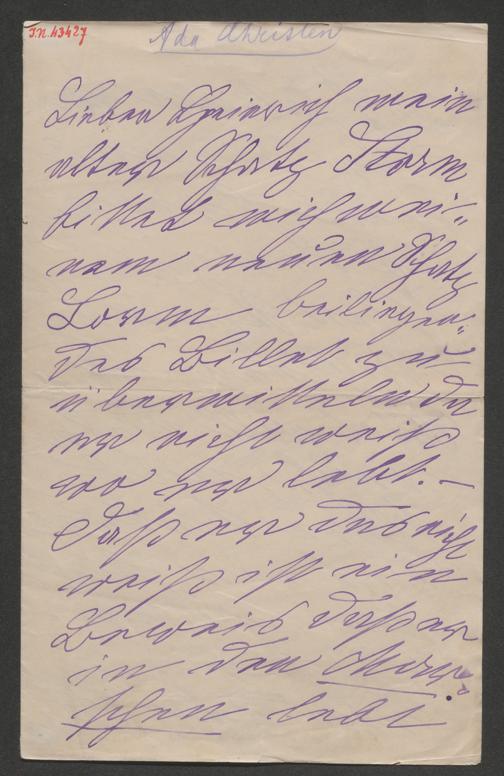 J.N. 43427
Ada Christen
Lieber Heinrich mein
alter Schatz Storm
bittet mich mei-
nem neuen Schatz
Lorm beiliegen-
des Billet zu
übermitteln da
er nicht weiß
wo er lebt. –
Daß er das nicht
weiß ist ein
Beweis daß er
in den Mar-
schen lebt